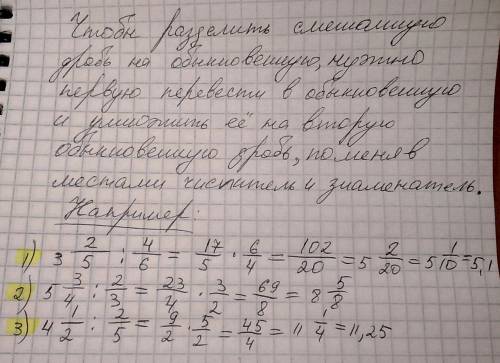 Чтобы разделить смешанную
дробь на обыкновенную, нужно
первую перевести в обыкновенную
и умножить её на вторую
обыкновенную дробь, поменяв
местами числитель и знаменатель.
Например:
1) 3 2/5 : 4/6 = 17/5 · 6/4 = 102/20 = 5 2/20 = 5 1/10 = 5,1
2) 5 3/4 : 2/3 = 23/4 · 3/2 = 69/8 = 8 5/8
3) 4 1/2 : 2/5 = 9/2 · 5/2 = 45/4 = 11 1/4 = 11,25